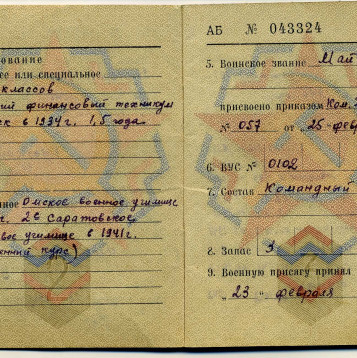 зование
ее или специальное
классов
ий финансовый техникум
ск в 1934 г. 1,5 года
нное Омское военное училище
г. 2е Саратовское
вое училище в 1941 г.
енный курс)
АБ № 043324
5. Воинское звание Май
присвоено приказом Ком.
№ 057 от "25 февр
6. ВУС № 0102
7. Состав Командный
8. Запас 3
9. Военную присягу принял
"23" февраля